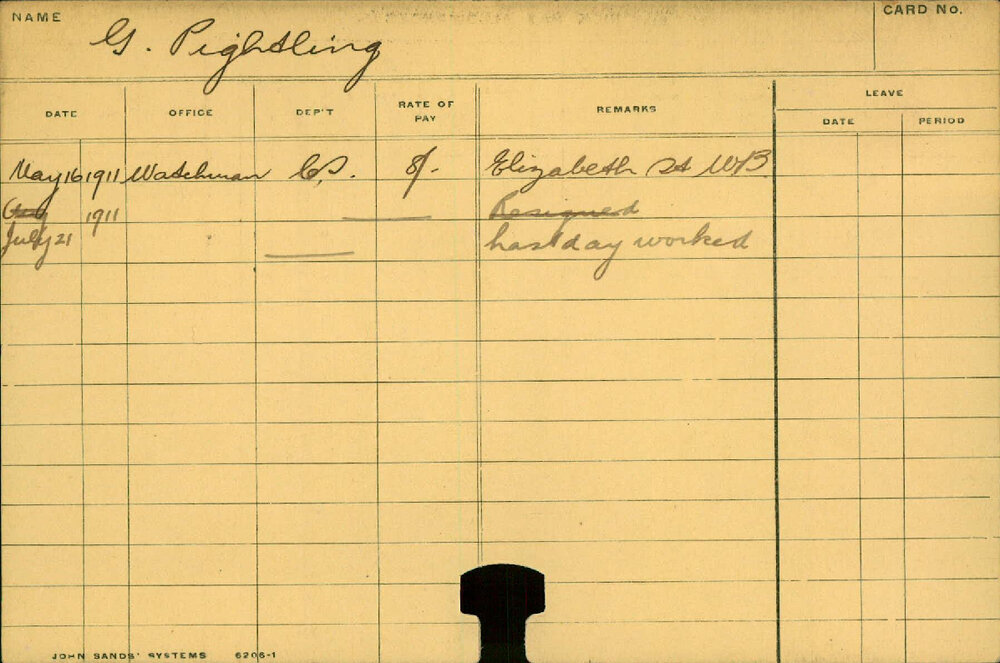 NAME
G. Pightling
CARD No.
DATE OFFICE DEP'T RATE OF PAY REMARKS LEAVE
DATE PERIOD
May 16 1911 Watchman C.S. 8/- Elizabeth St WB
1911 Resigned
July 21 Last day worked
JOHN SANDS' SYSTEMS 6206-1